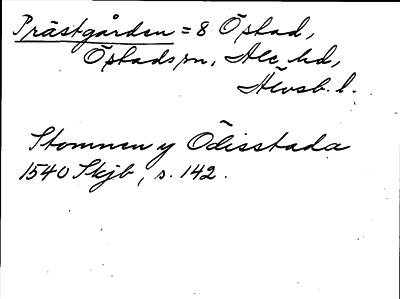 Prästgården = 8 Östad,
Östads sn, Ale hd,
Älvsb. l.
Stommen y Ödisstada
1540 Skjb, s. 142.